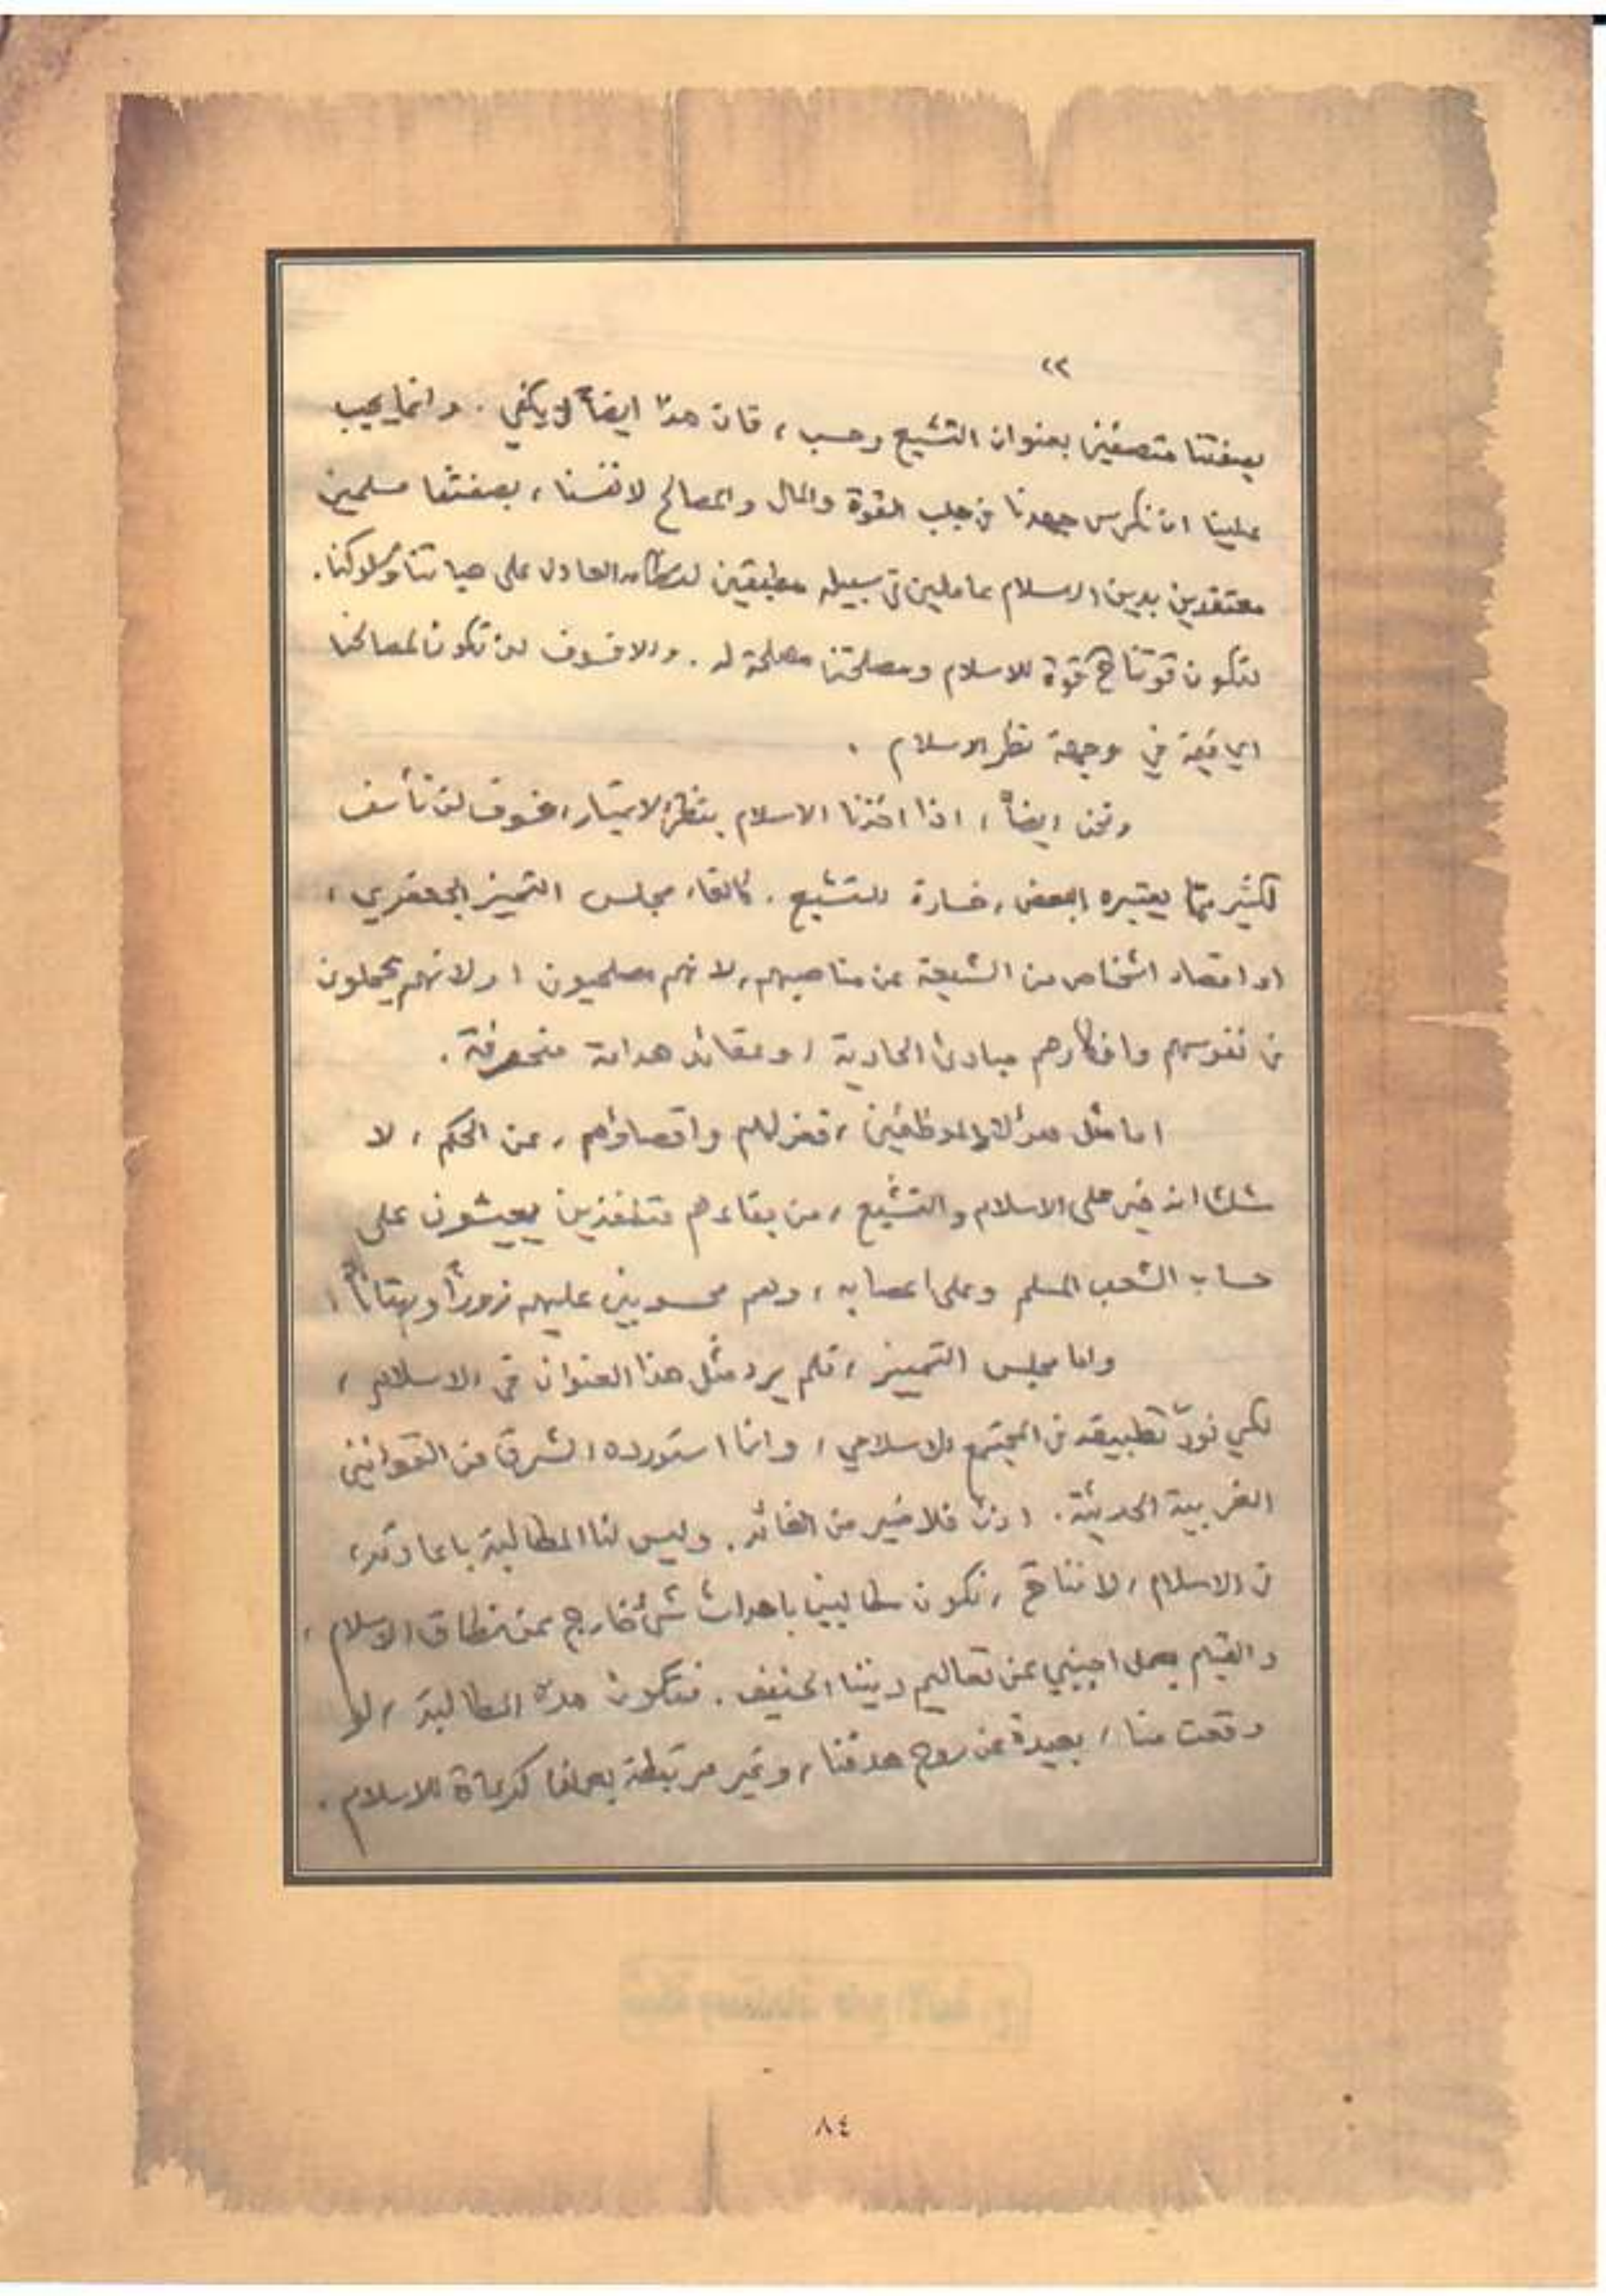 ٢٢
بصفتنا متصفين بعنوان التشيع وحسب ، فان هذا ايضاً لا يكفي . وانما يجب
علينا ان نكرس جهدنا في جلب القوة والمال والمصالح لانفسنا ، بصفتنا مسلمين
معتقدين بدين الاسلام عاملين في سبيله مطبقين العادل على حياتنا وسلوكنا .
لتكون قوتنا قوة للاسلام ومصلحتنا مصلحة له . والا فسوف لن تكون لمصالحنا
اي قيمة في وجهة نظر الاسلام .
ونحن ايضاً ، اذا اخذنا الاسلام بنظر الاعتبار ، فسوف لن نأسف
لكثير مما يعتبره البعض ، خسارة للتشيع . كالغاء مجلس التمييز الجعفري ،
او اقصاء اشخاص من الشيعة عن مناصبهم ، لانهم مصلحيون ، او لانهم يحملون
في نفوسهم وافكارهم مبادئ الحادية ، او عقائد هدامة منحرفة .
اما مثل هؤلاء الموظفين ، فعزلهم واقصاؤهم ، عن الحكم ، لا
شك انه خير على الاسلام والتشيع ، من بقاءهم متنفذين يعيشون على
حساب الشعب المسلم وعلى اعصابه ، وهم محسوبين عليهم زوراً وبهتاناً ،
واما مجلس التمييز ، فلم يرد مثل هذا العنوان في الاسلام ،
لكي نودّ تطبيقه في المجتمع الاسلامي ، وانما استورده الشرق من القوانين
الغربية الحديثة . اذن فلا خير من الغائه . وليس لنا المطالبة باعادته ،
في الاسلام ، لاننا ، نكون مطالبين باحداث شئ خارج عن نطاق الاسلام ،
والقيام بعمل اجنبي عن تعاليم ديننا الحنيف . فتكون هذه المطالبة ، لو
وقعت منا ، بعيدة عن روح هدفنا ، وغير مرتبطة بعملنا كدعاة للاسلام .
٨٤